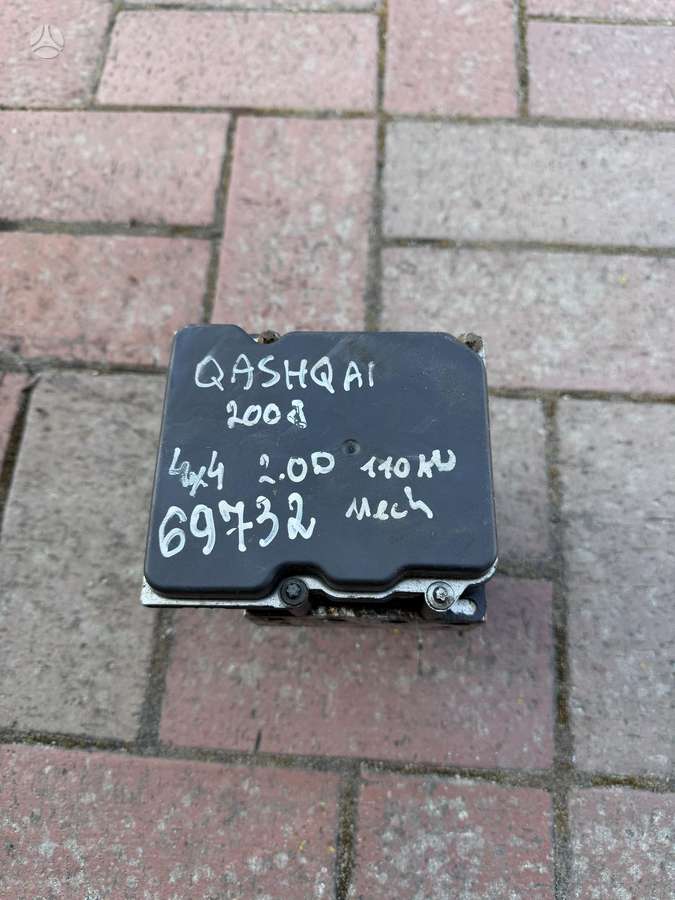 QASHQAI
2008
4x4 2.0D 110KW
69732 Mech